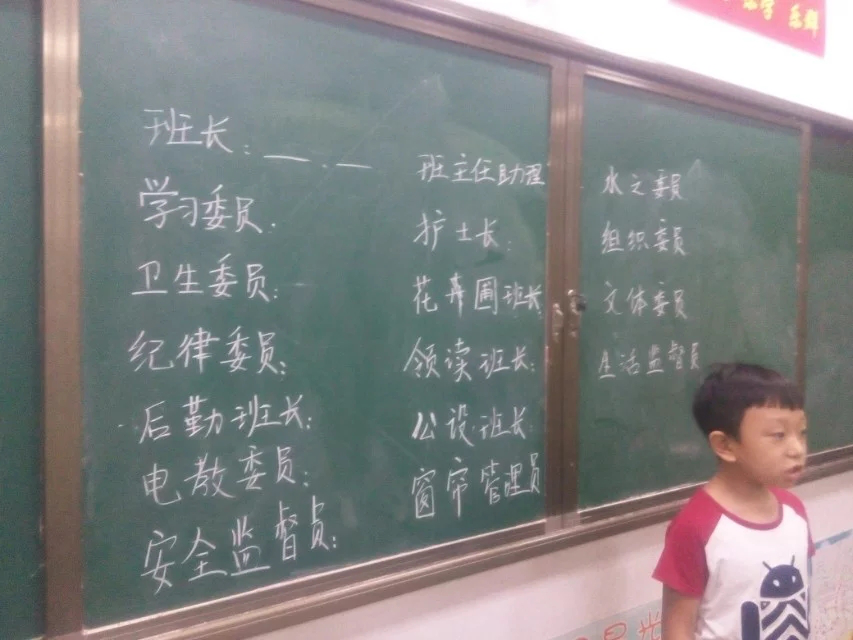 班长:
学习委员.
卫生委员:
纪律委员:
后勤班长:
电教委员:
安全监督员:
班主任助理
护士长:
花卉圃班长
领读班长:
公设班长
窗帘管理员
水之委员
组织委员
文体委员
生活监督员